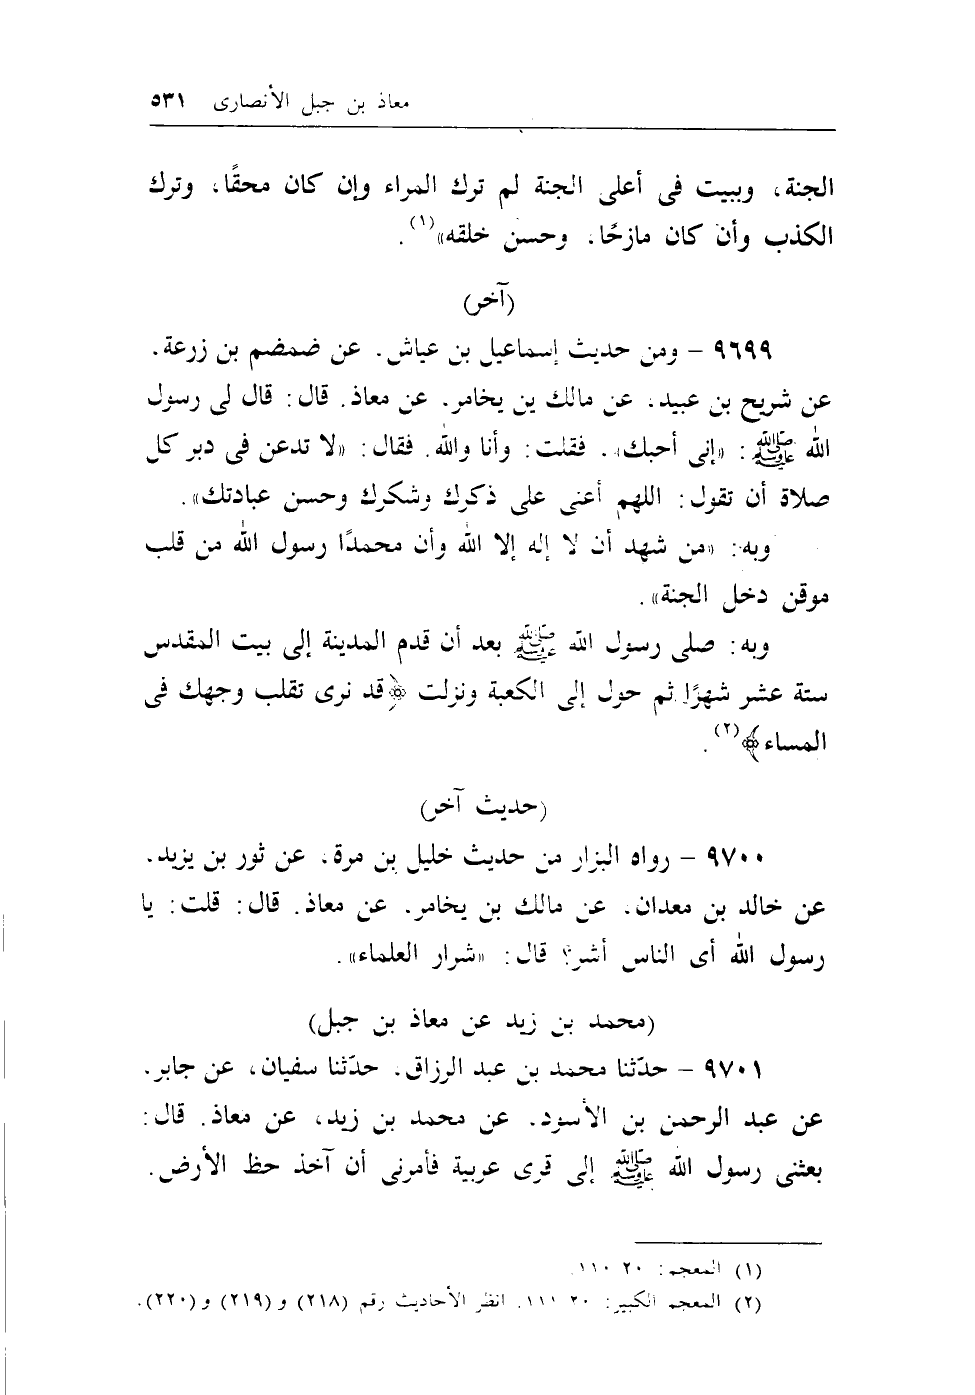 معاذ بن جبل الأنصارى ٥٣١
الجنة، وببيت فى أعلى الجنة لم ترك المراء وإن كان محقًا، وترك
الكذب وأن كان مازحًا، وحسن خلقه»(١).
(آخر)
٩٦٩٩ – ومن حديث إسماعيل بن عياش، عن ضمضم بن زرعة،
عن شريح بن عبيد، عن مالك ين يخامر، عن معاذ. قال: قال لى رسول
الله ﷺ: «إنى أحبك». فقلت: وأنا والله. فقال: «لا تدعن فى دبر كل
صلاة أن تقول: اللهم أعنى على ذكرك وشكرك وحسن عبادتك».
وبه: «من شهد أن لا إله إلا الله وأن محمدًا رسول الله من قلب
موقن دخل الجنة».
وبه: صلى رسول الله ﷺ بعد أن قدم المدينة إلى بيت المقدس
ستة عشر شهرًا ثم حول إلى الكعبة ونزلت ﴿قد نرى تقلب وجهك فى
المساء﴾(٢).
(حديث آخر)
٩٧٠٠ – رواه البزار من حديث خليل بن مرة، عن ثور بن يزيد،
عن خالد بن معدان، عن مالك بن يخامر، عن معاذ. قال: قلت: يا
رسول الله أى الناس أشر؟ قال: «شرار العلماء».
(محمد بن زيد عن معاذ بن جبل)
٩٧٠١ – حدّثنا محمد بن عبد الرزاق، حدّثنا سفيان، عن جابر،
عن عبد الرحمن بن الأسود، عن محمد بن زيد، عن معاذ. قال:
بعثنى رسول الله ﷺ إلى قرى عربية فأمرنى أن آخذ حظ الأرض.
(١) المعجم: ٢٠ ١١٠.
(٢) المعجم الكبير: ٢٠ ١١١. انظر الأحاديث رقم (٢١٨) و(٢١٩) و(٢٢٠).